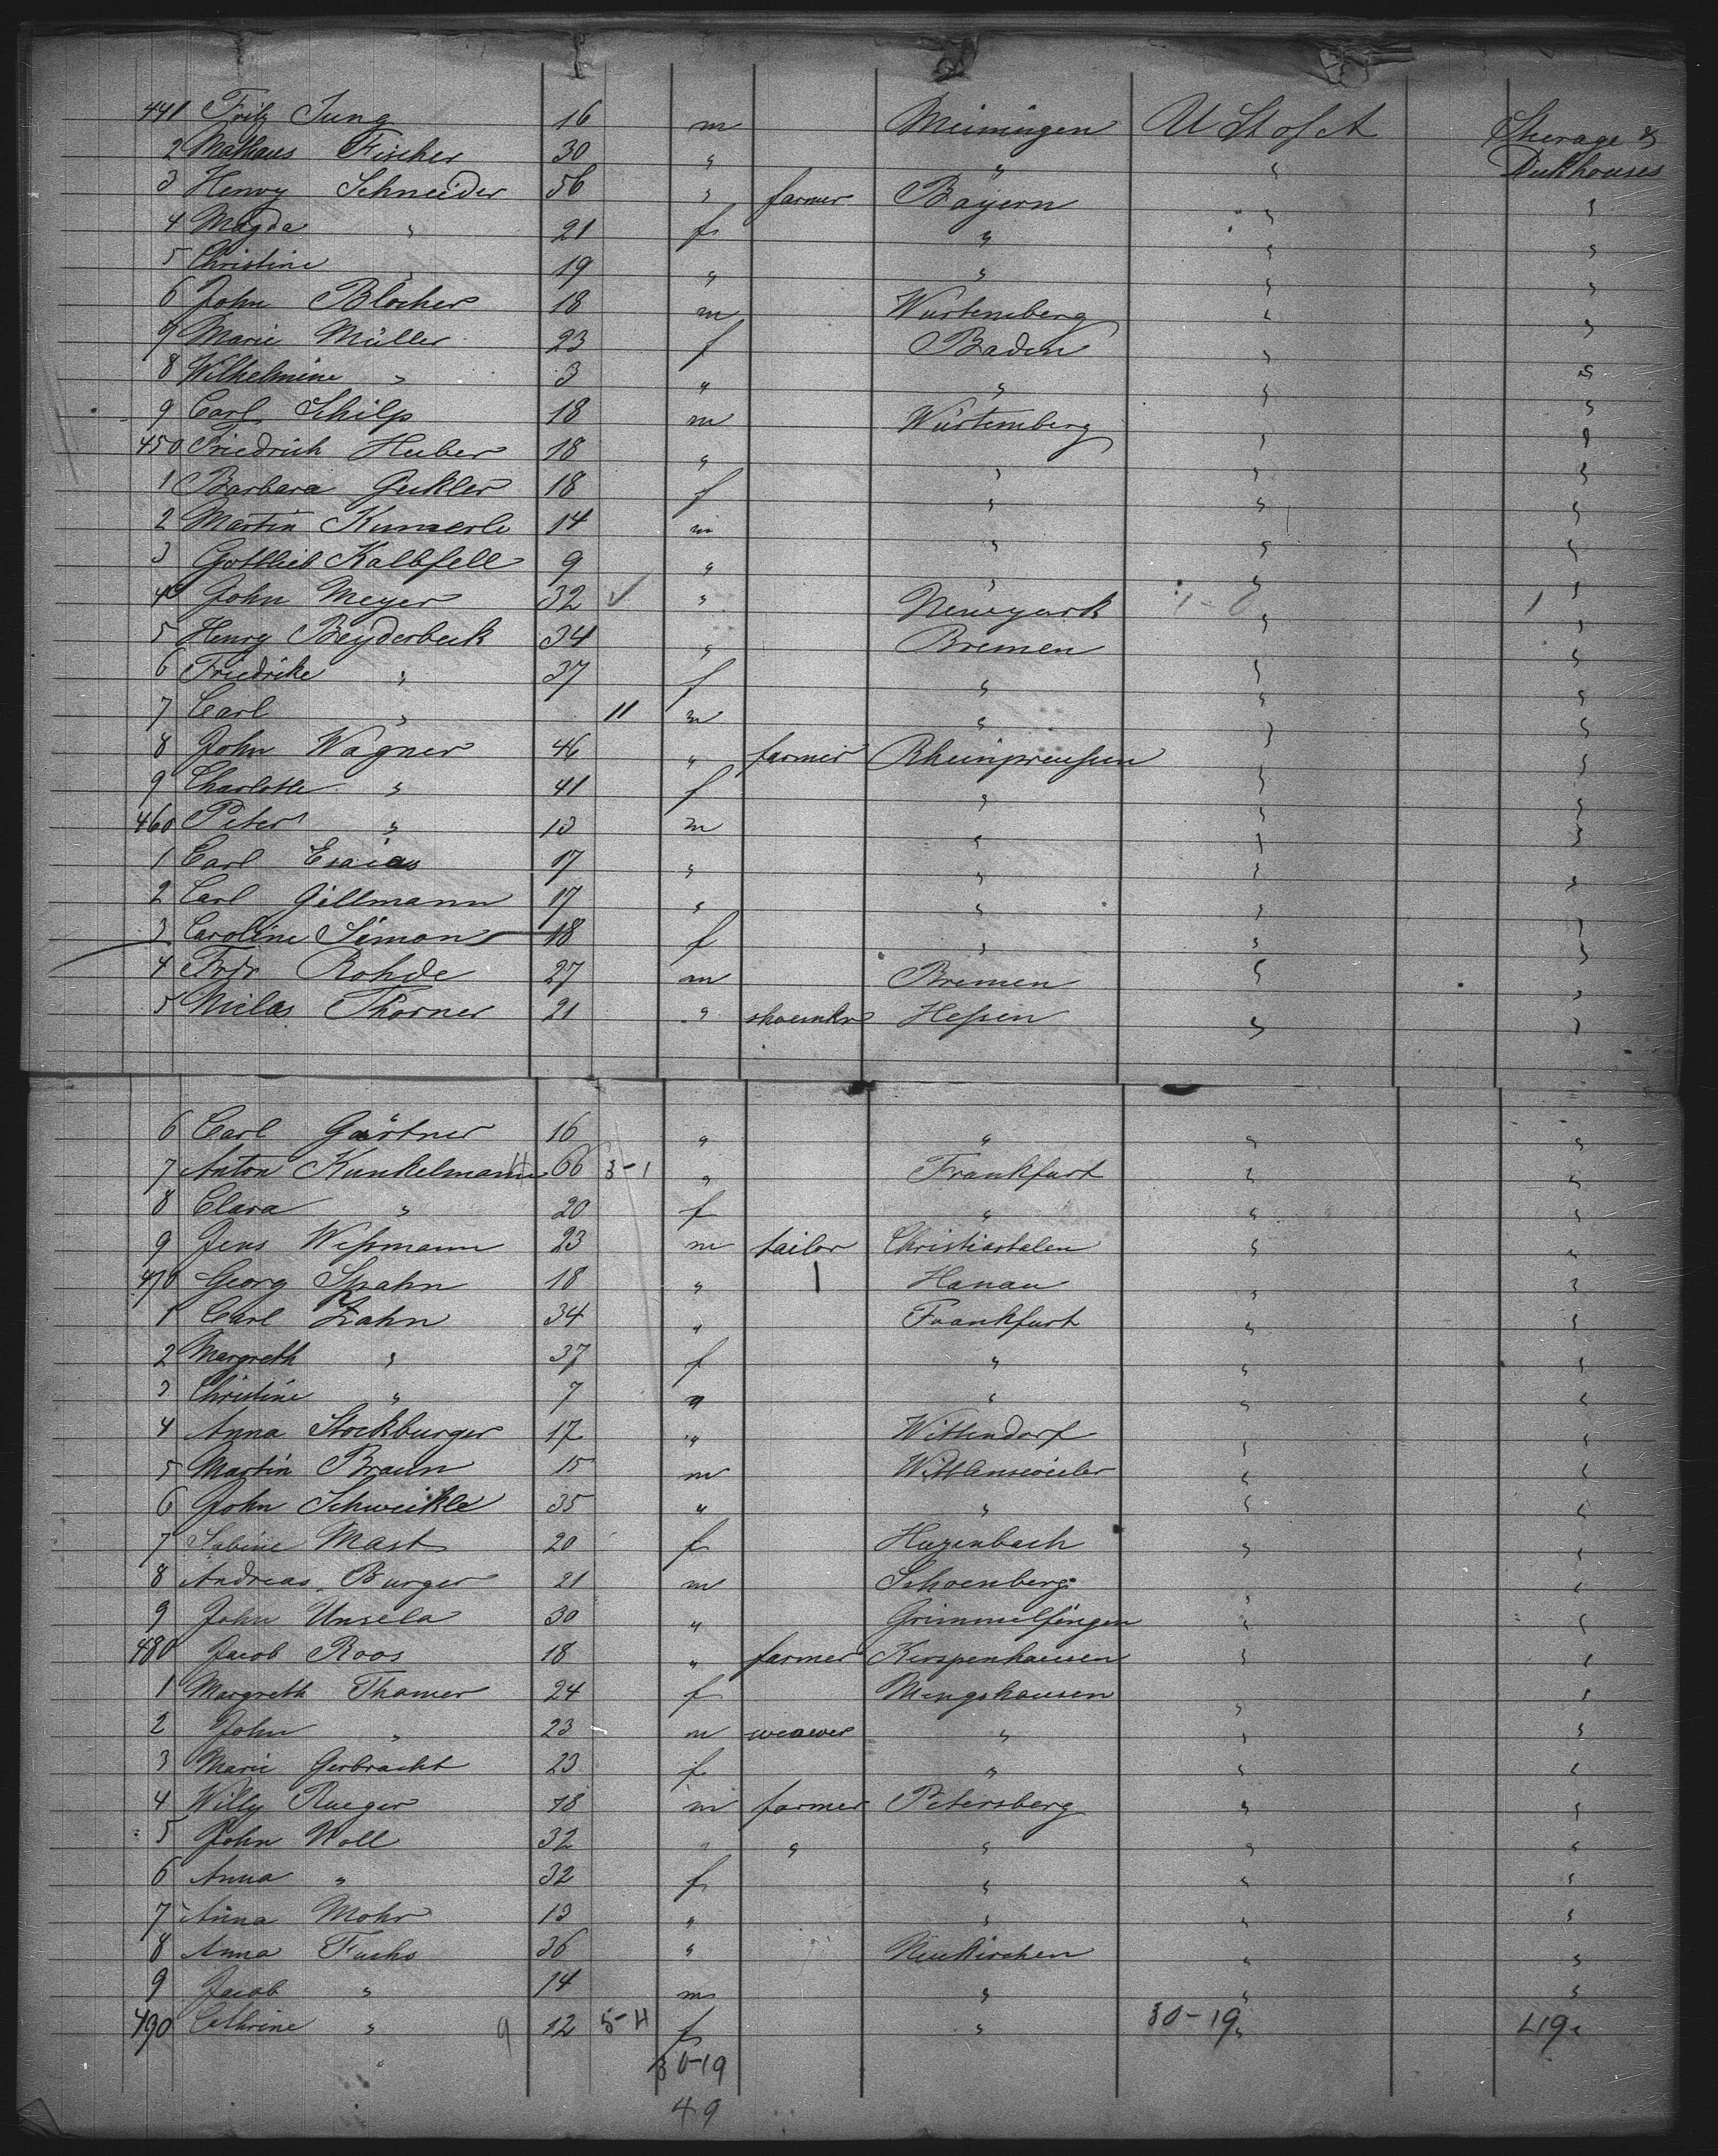 441 Fritz Jung 16 m Meiningen U St of A Sterage &
2 Mathaus Fischer 30 " " " Deckhouses
3 Henry Schneider 56 " farmer Bayern " "
4 Magda " 21 f " " "
5 Christine " 19 " " " "
6 John Blocher 18 m Würtemberg " "
7 Marie Müller 23 f Baden " "
8 Wilhelmine " 3 " " " "
9 Carl Schilp 18 m Würtemberg " "
450 Friedrich Huber 18 " " " "
1 Barbara Geckler 18 f " " "
2 Martin Kümerle 14 m " " "
3 Gottlieb Kalbfell 9 " " " "
4 John Meyer 32 ✓ " Newyork " "
5 Henry Beyderbeck 34 " Bremen " "
6 Friedrike " 37 f " " "
7 Carl " 11 m " " "
8 John Wagner 46 " farmer Rheinpreußen " "
9 Charlotte " 41 f " " "
460 Peter " 13 m " " "
1 Carl Esaias 17 " " " "
2 Carl Gillmann 17 " " " "
3 Caroline Simon 18 f " " "
4 Frdr Rohde 27 m Bremen " "
5 Niclas Thorner 21 " shoemkr Heßen " "
6 Carl Gärtner 16 " " " "
7 Anton Kunkelmann 66 3-1 " Frankfurt " "
8 Clara " 20 f " " "
9 Jens Weßmann 23 m tailor Christiastalen " "
470 Georg Spahn 18 " 1 Hanau " "
1 Carl Zahn 34 " Frankfurt " "
2 Margreth " 37 f " " "
3 Christine " 7 " " " "
4 Anna Stockburger 17 " Wittendorf " "
5 Martin Braun 15 m Wittlensweiler " "
6 John Schweikle 35 " " " "
7 Sabine Mast 20 f Huzenbach " "
8 Andreas Burger 21 m Schoenberg " "
9 John Unsela 30 " Grimmelfingen " "
480 Jacob Roos 18 " farmer Kirspenhausen " "
1 Margreth Thamer 24 f Mengshausen " "
2 John " 23 m weawer " " "
3 Marie Gerbracht 23 f " " "
4 Willy Rueger 18 m farmer Petersberg " "
5 John Noll 32 " " " " "
6 Anna " 32 f " " "
7 Anna Mohr 13 " " " "
8 Anna Fuchs 36 " Neukirchen " "
9 Jacob " 14 m " " "
490 Cathrine " 9 12 5-4 f " 30-19 " 49 "
30-19
49